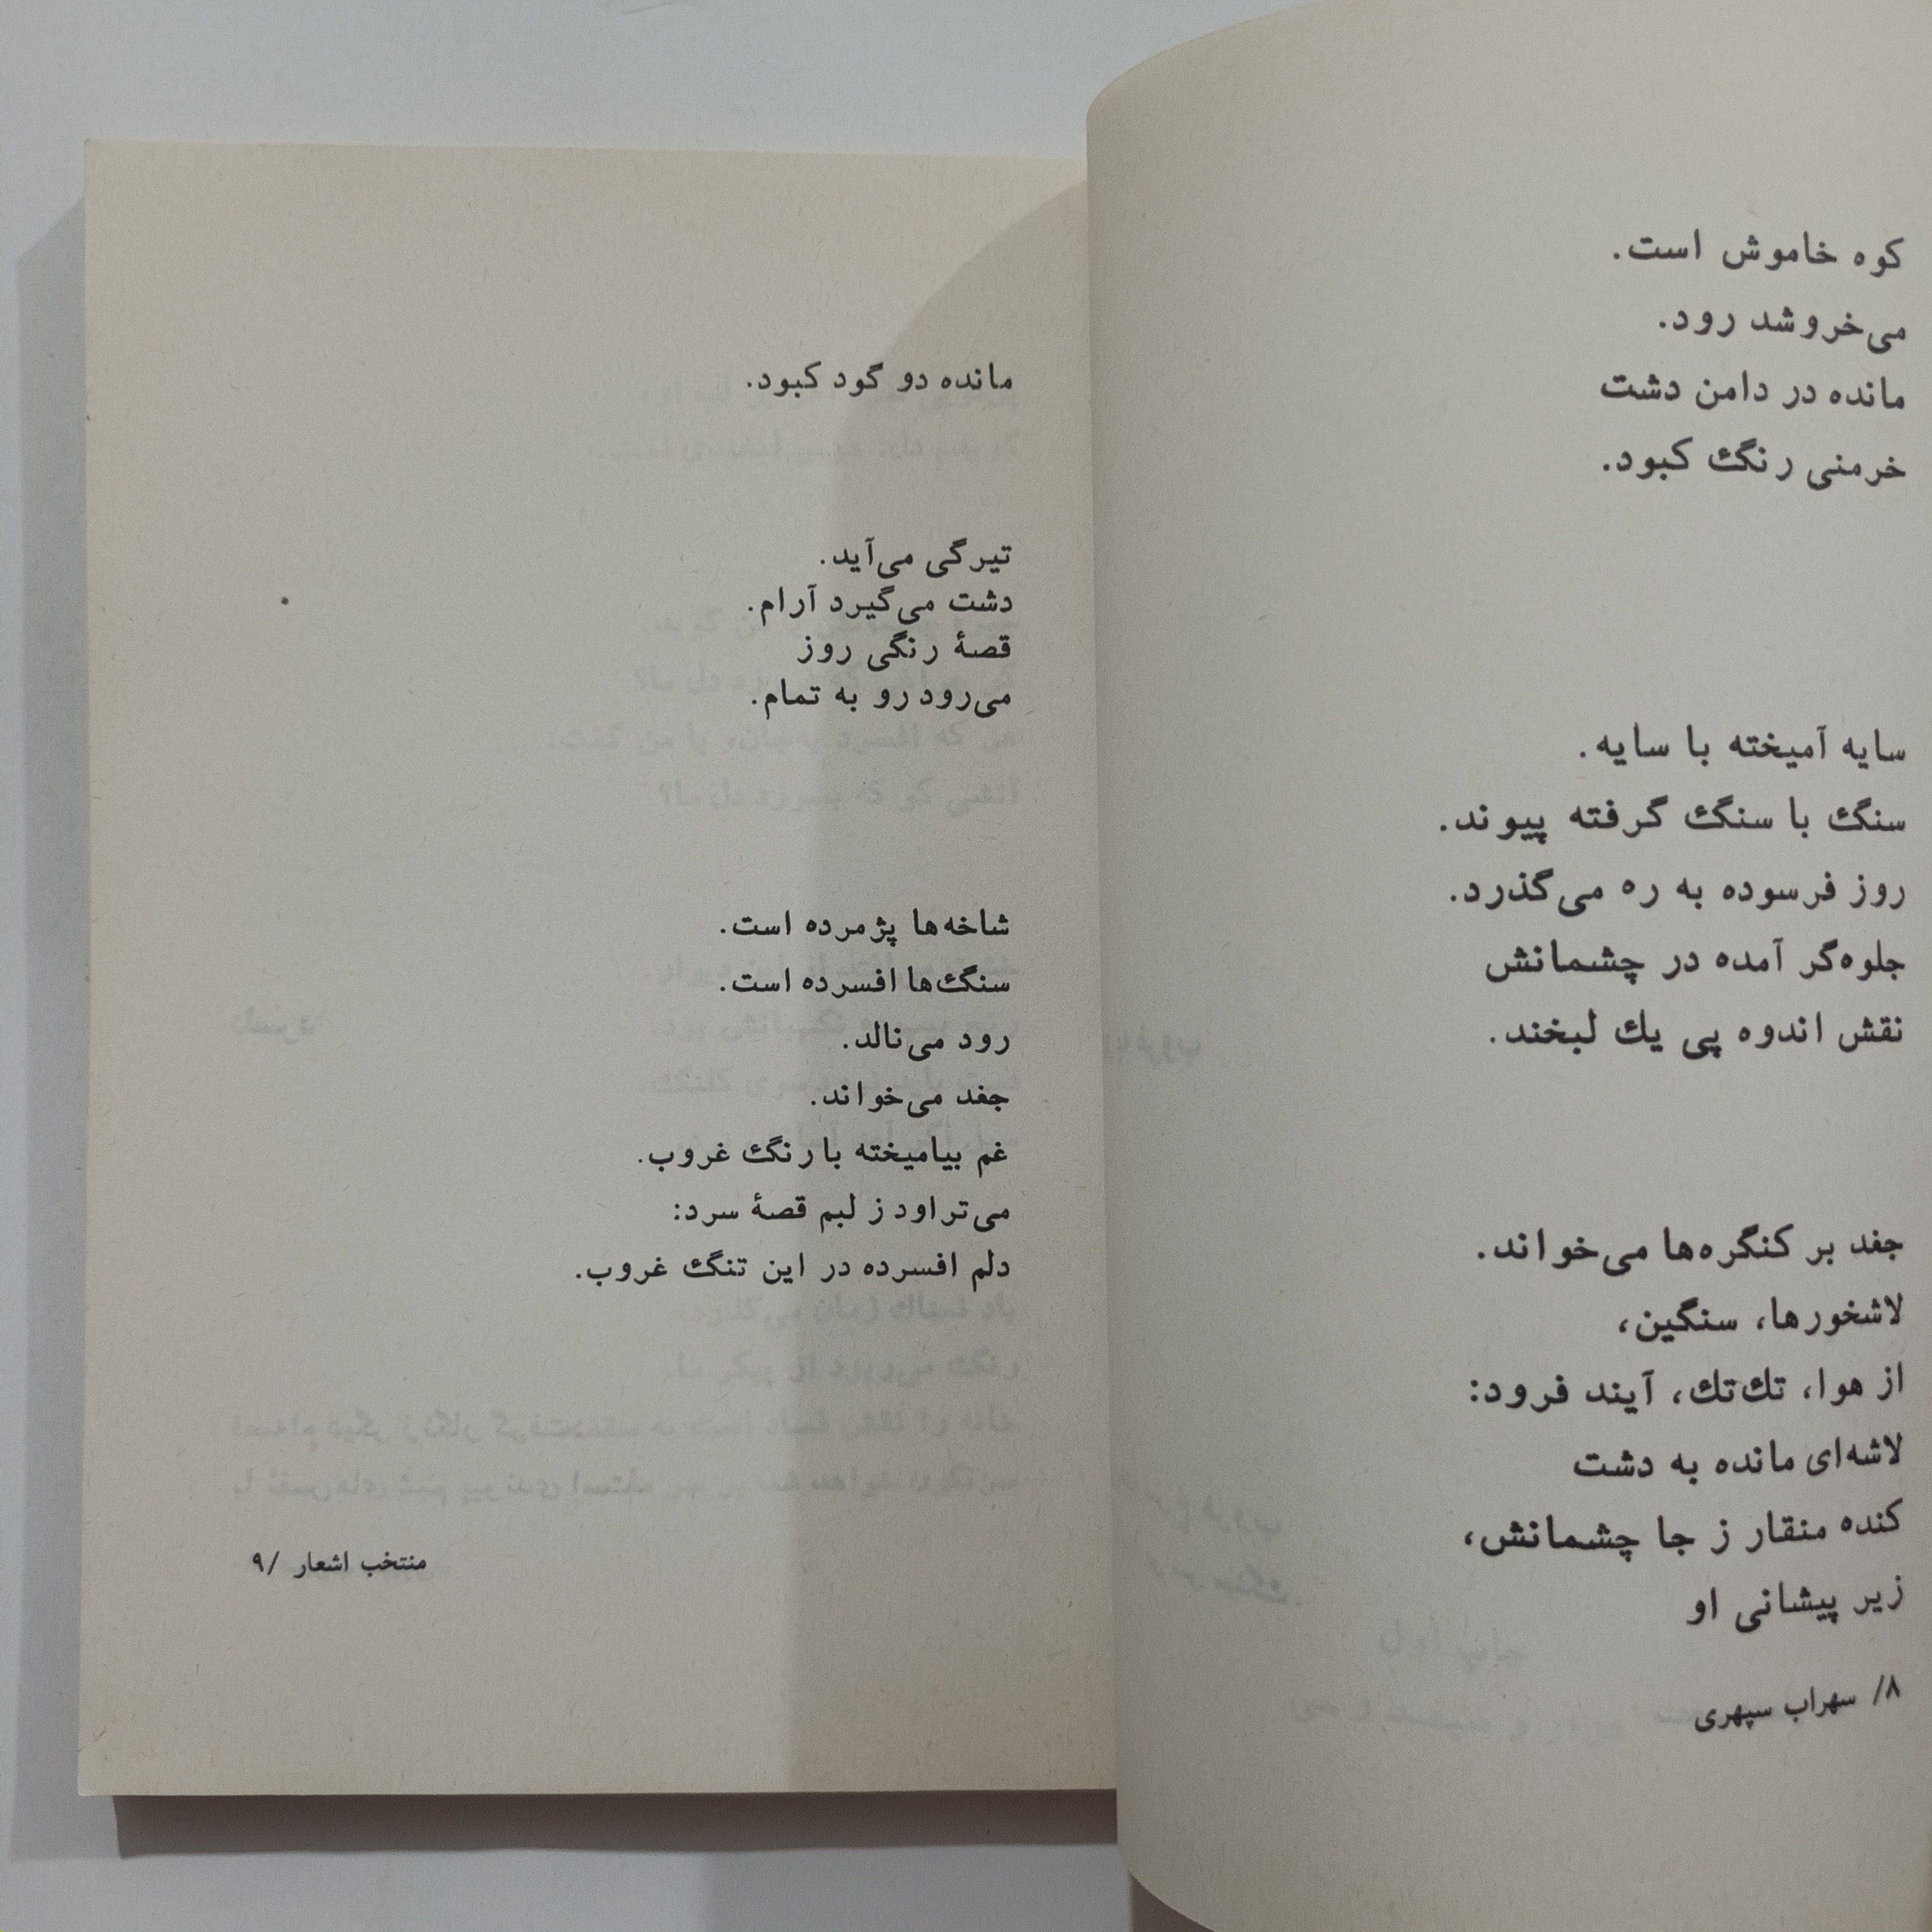 کوه خاموش است.
می‌خروشد رود.
مانده در دامن دشت
خرمنی رنگ کبود.
سایه آمیخته با سایه.
سنگ با سنگ گرفته پیوند.
روز فرسوده به ره می‌گذرد.
جلوه‌گر آمده در چشمانش
نقش اندوه پی یك لبخند.
جغد بر کنگره‌ها می‌خواند.
لاشخورها، سنگین،
از هوا، تك‌تك، آیند فرود:
لاشه‌ای مانده به دشت
کنده منقار ز جا چشمانش،
زیر پیشانی او
۸/ سهراب سپهری
مانده دو گود کبود.
تیرگی می‌آید.
دشت می‌گیرد آرام.
قصهٔ رنگی روز
می‌رود رو به تمام.
شاخه‌ها پژمرده است.
سنگ‌ها افسرده است.
رود می‌نالد.
جغد می‌خواند.
غم بیامیخته با رنگ غروب.
می‌تراود ز لبم قصهٔ سرد:
دلم افسرده در این تنگ غروب.
منتخب اشعار /۹